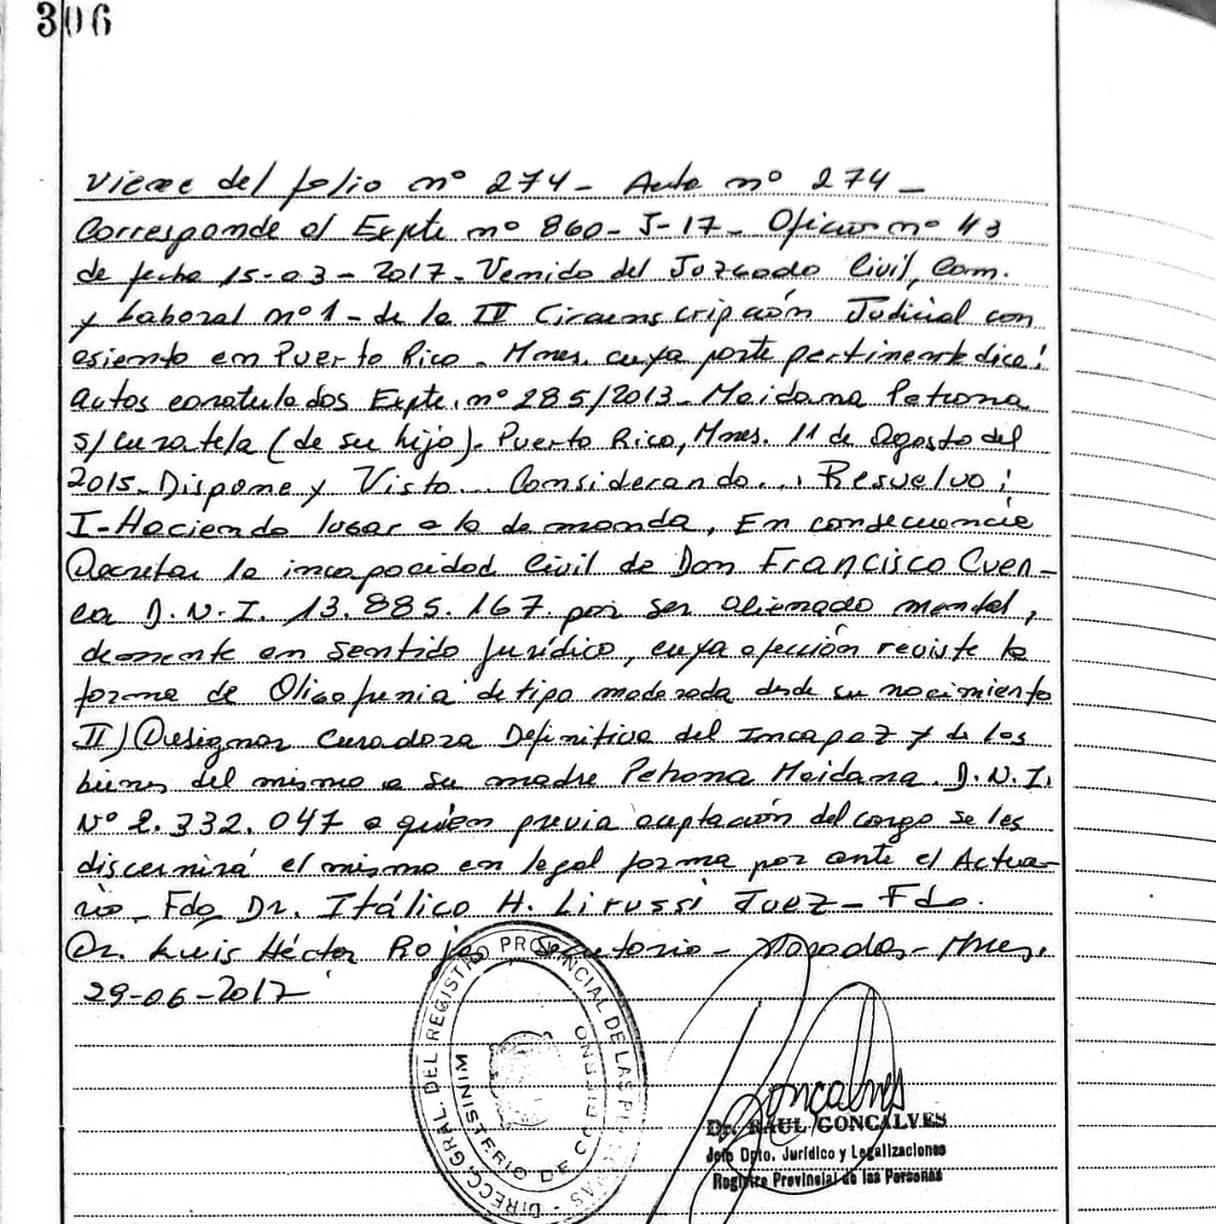 306
Viene del folio nº 274 - Acta nº 274 -
Corresponde al Expte nº 860 - J - 17 - Oficio nº 43
de fecha 15-03-2017 - Venido del Juzgado Civil, Com.
y Laboral nº 1 - de la IV Circunscripción Judicial con
asiento en Puerto Rico - Mnes. cuya parte pertinente dice:
autos caratulados Expte. nº 285/2013 - Maidana Petrona
s/curatela (de su hijo). Puerto Rico, Mnes. 11 de Agosto del
2015 - Dispone y Visto... Considerando... Resuelvo:
I - Haciendo lugar a la demanda, En consecuencia
Decretar la incapacidad Civil de Don Francisco Cuen-
ca D.N.I. 13.885.167 por ser alienado mental,
demente en sentido jurídico, cuya afección reviste la
forma de Oligofrenia de tipo moderada desde su nacimiento
II) Designar Curadora Definitiva del Incapaz y de los
bienes del mismo a su madre Petrona Maidana. D.N.I.
Nº 2.332.047 a quien previa aceptación del cargo se les
discernirá el mismo en legal forma por ante el Actua-
rio. Fdo Dr. Itálico H. Lirussi Juez - Fdo.
Dr. Luis Héctor Rojas Secretario - Posadas - Mnes.
29-06-2017
DIRECC. GRAL. DEL REGISTRO PROVINCIAL DE LAS PERSONAS
MINISTERIO DE GOBIERNO
Goncalves
Dr. RAUL GONCALVES
Jefe Dpto. Jurídico y Legalizaciones
Registro Provincial de las Personas